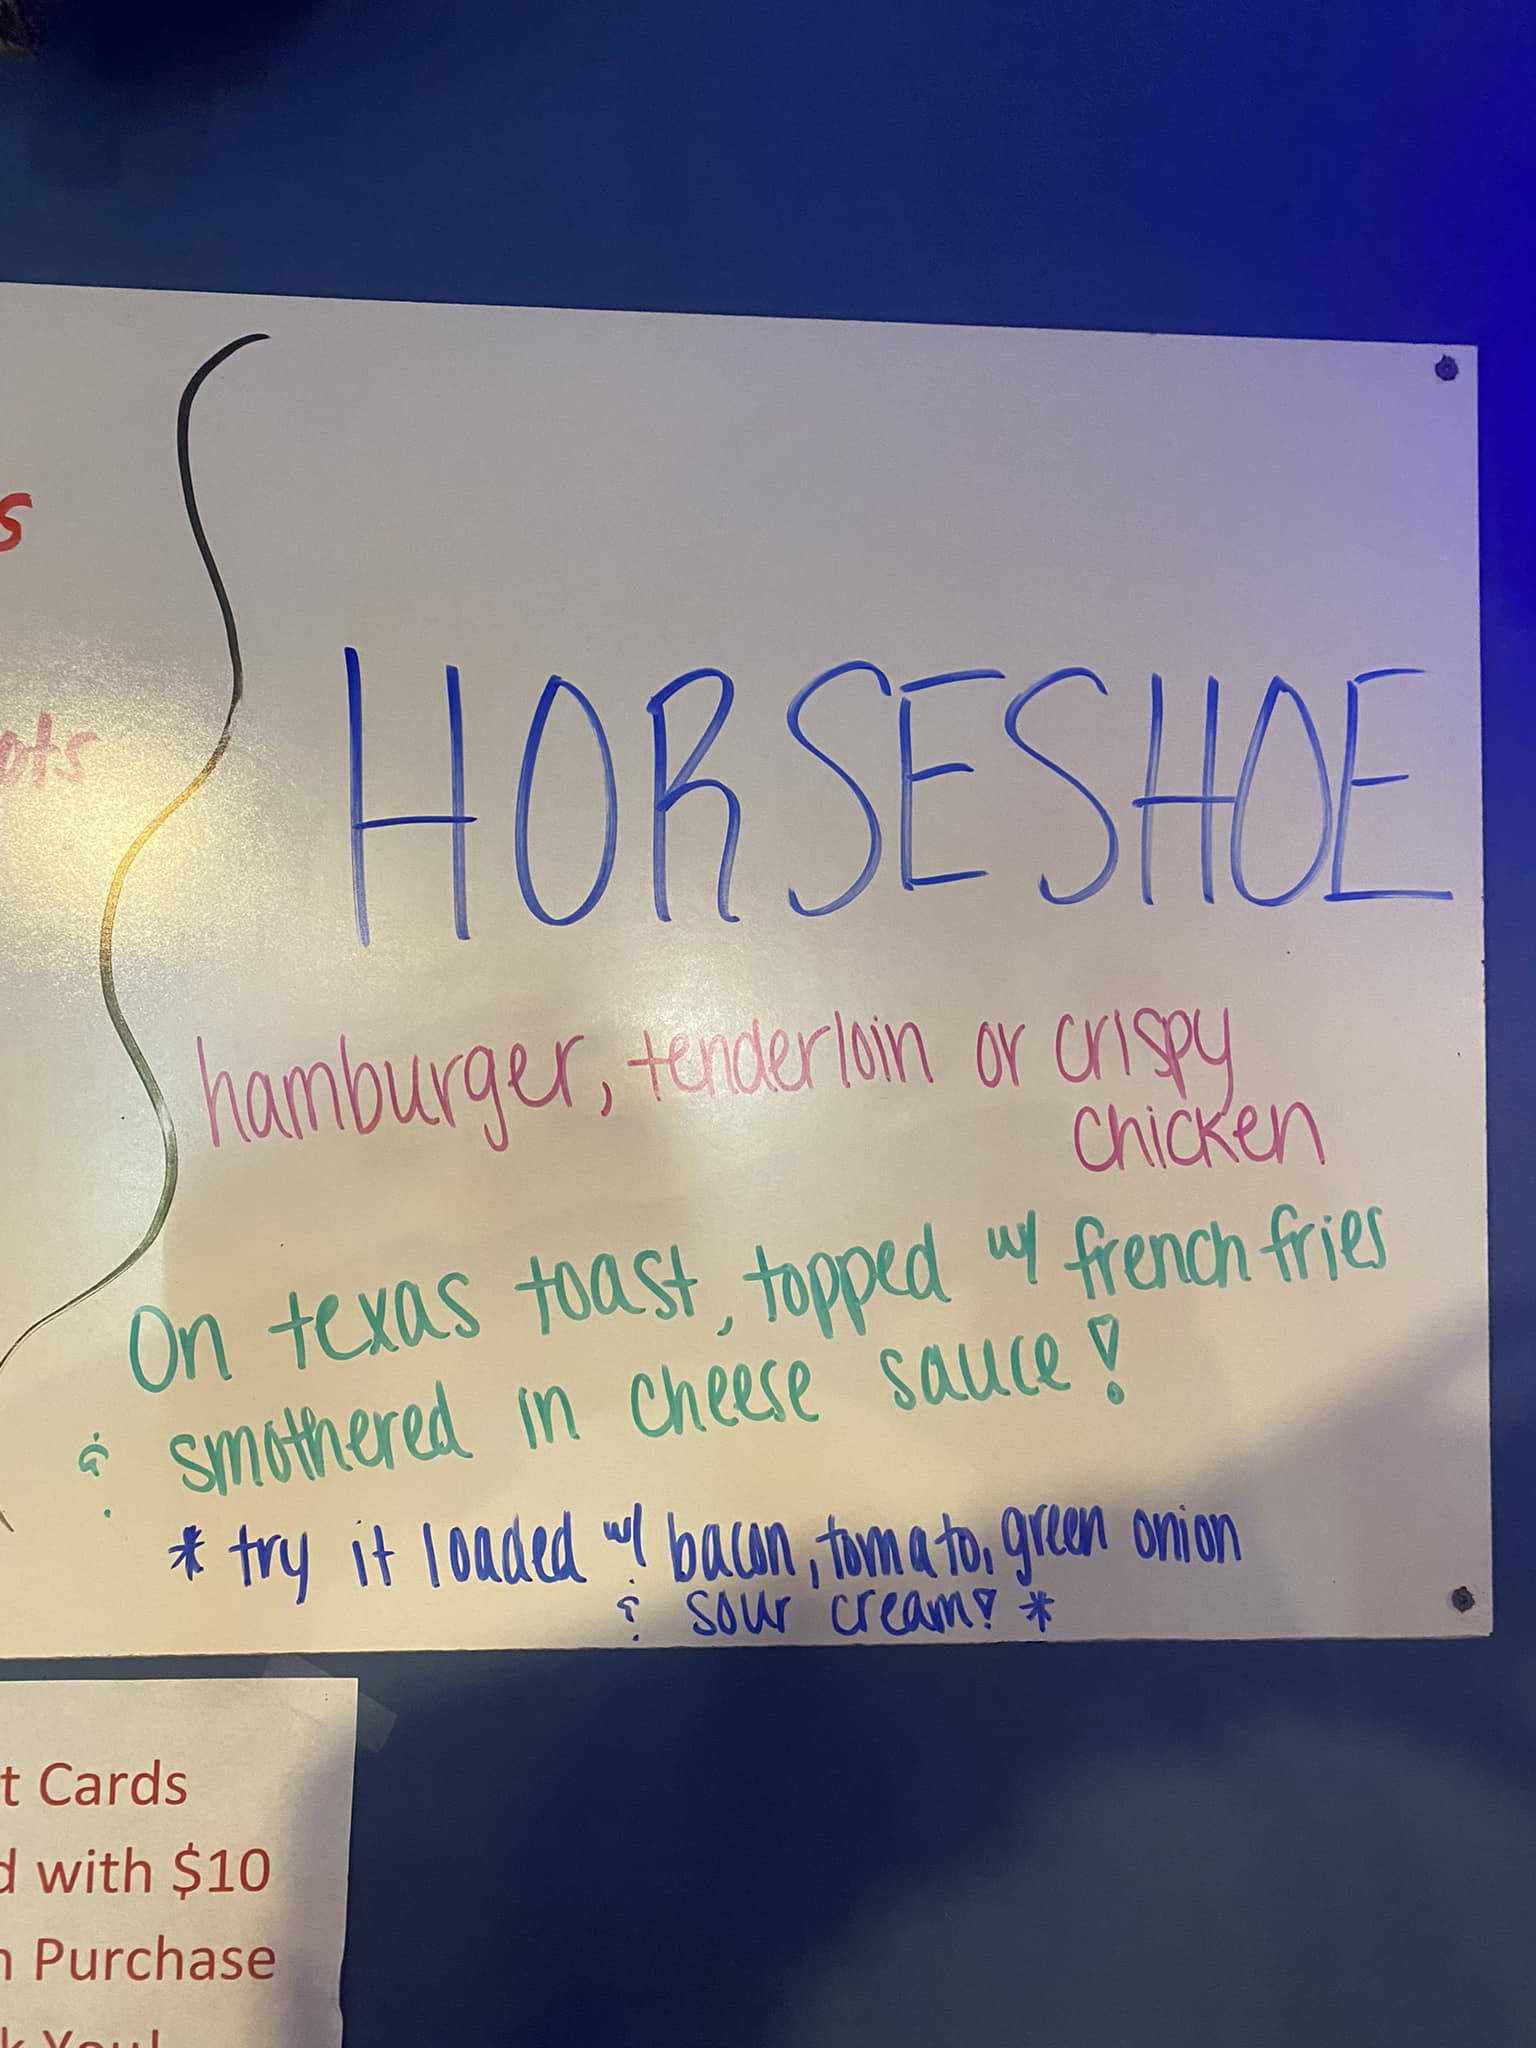 s
ots
HORSESHOE
hamburger, tenderloin or crispy
chicken
On texas toast, topped w/ french fries
& smothered in cheese sauce!
* try it loaded w/ bacon, tomato, green onion
& sour cream! *
t Cards
d with $10
n Purchase
k You!